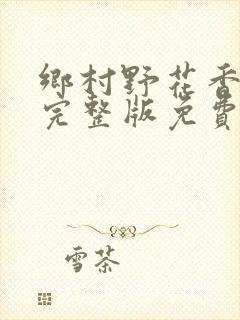 鄉村野花香
完整版免費
雪茶